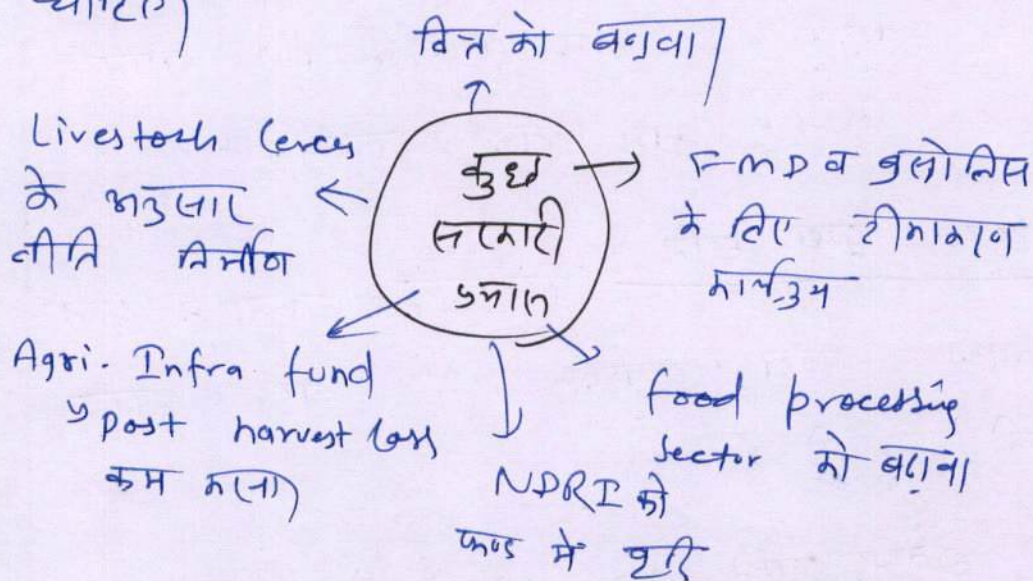 चाहिए)
वित्त को बढ़ावा
Livestock Census
के अनुसार
नीति निर्माण
कुछ
सरकारी
प्रयास
FMD व ब्रुसेलोसिस
के लिए टीकाकरण
कार्यक्रम
Agri. Infra fund
↳ Post harvest loss
कम करना)
NDRI को
फण्ड में वृद्धि
food processing
sector को बढ़ाना